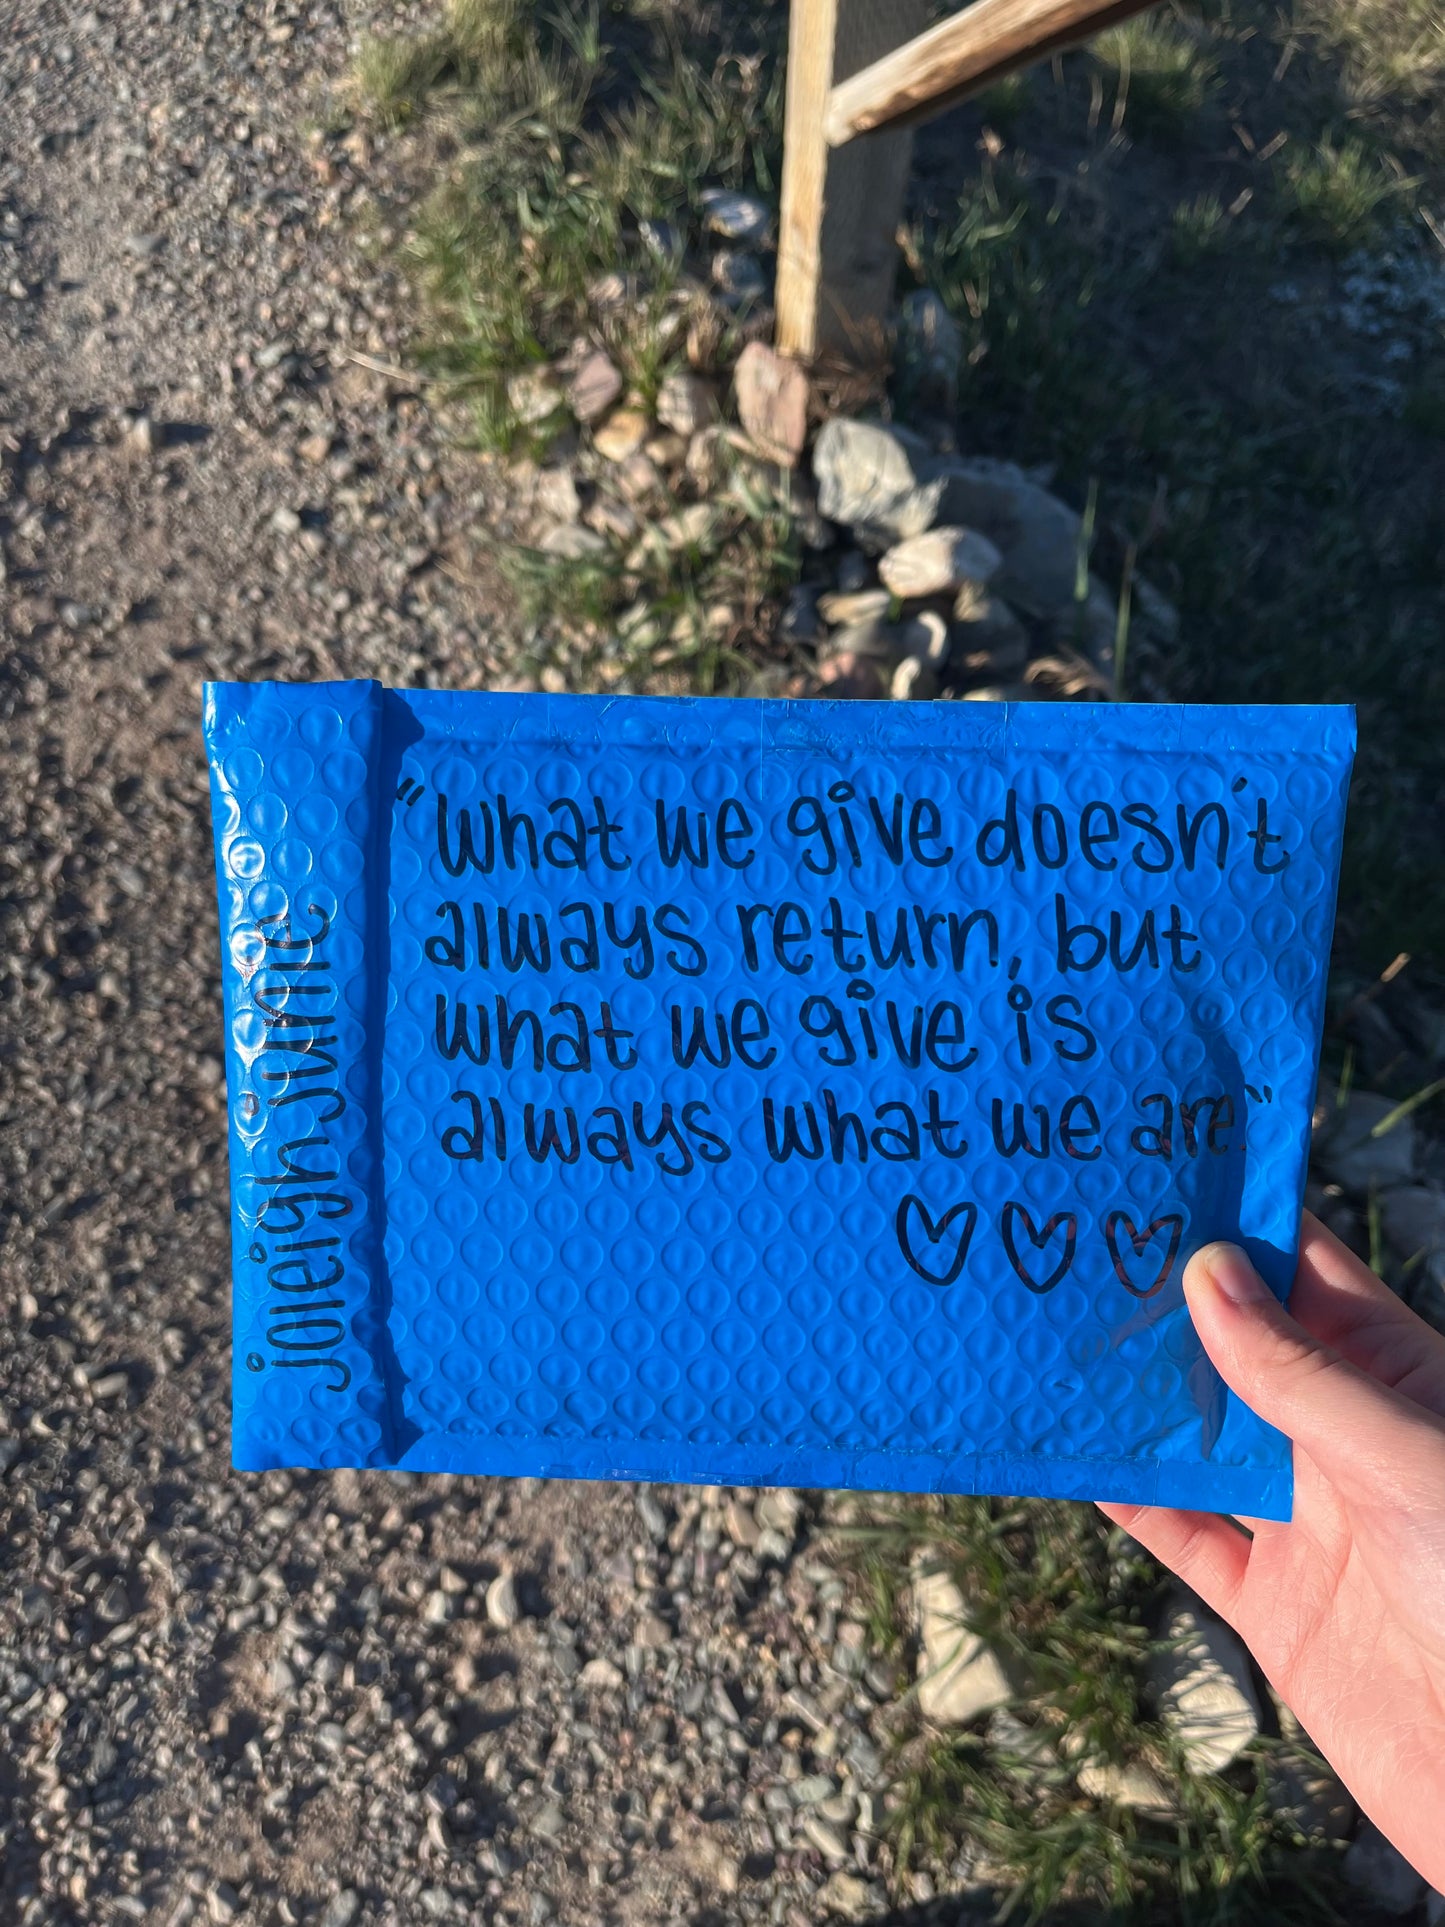 "What we give doesn't
always return, but
what we give is
always what we are."
joleigh junie